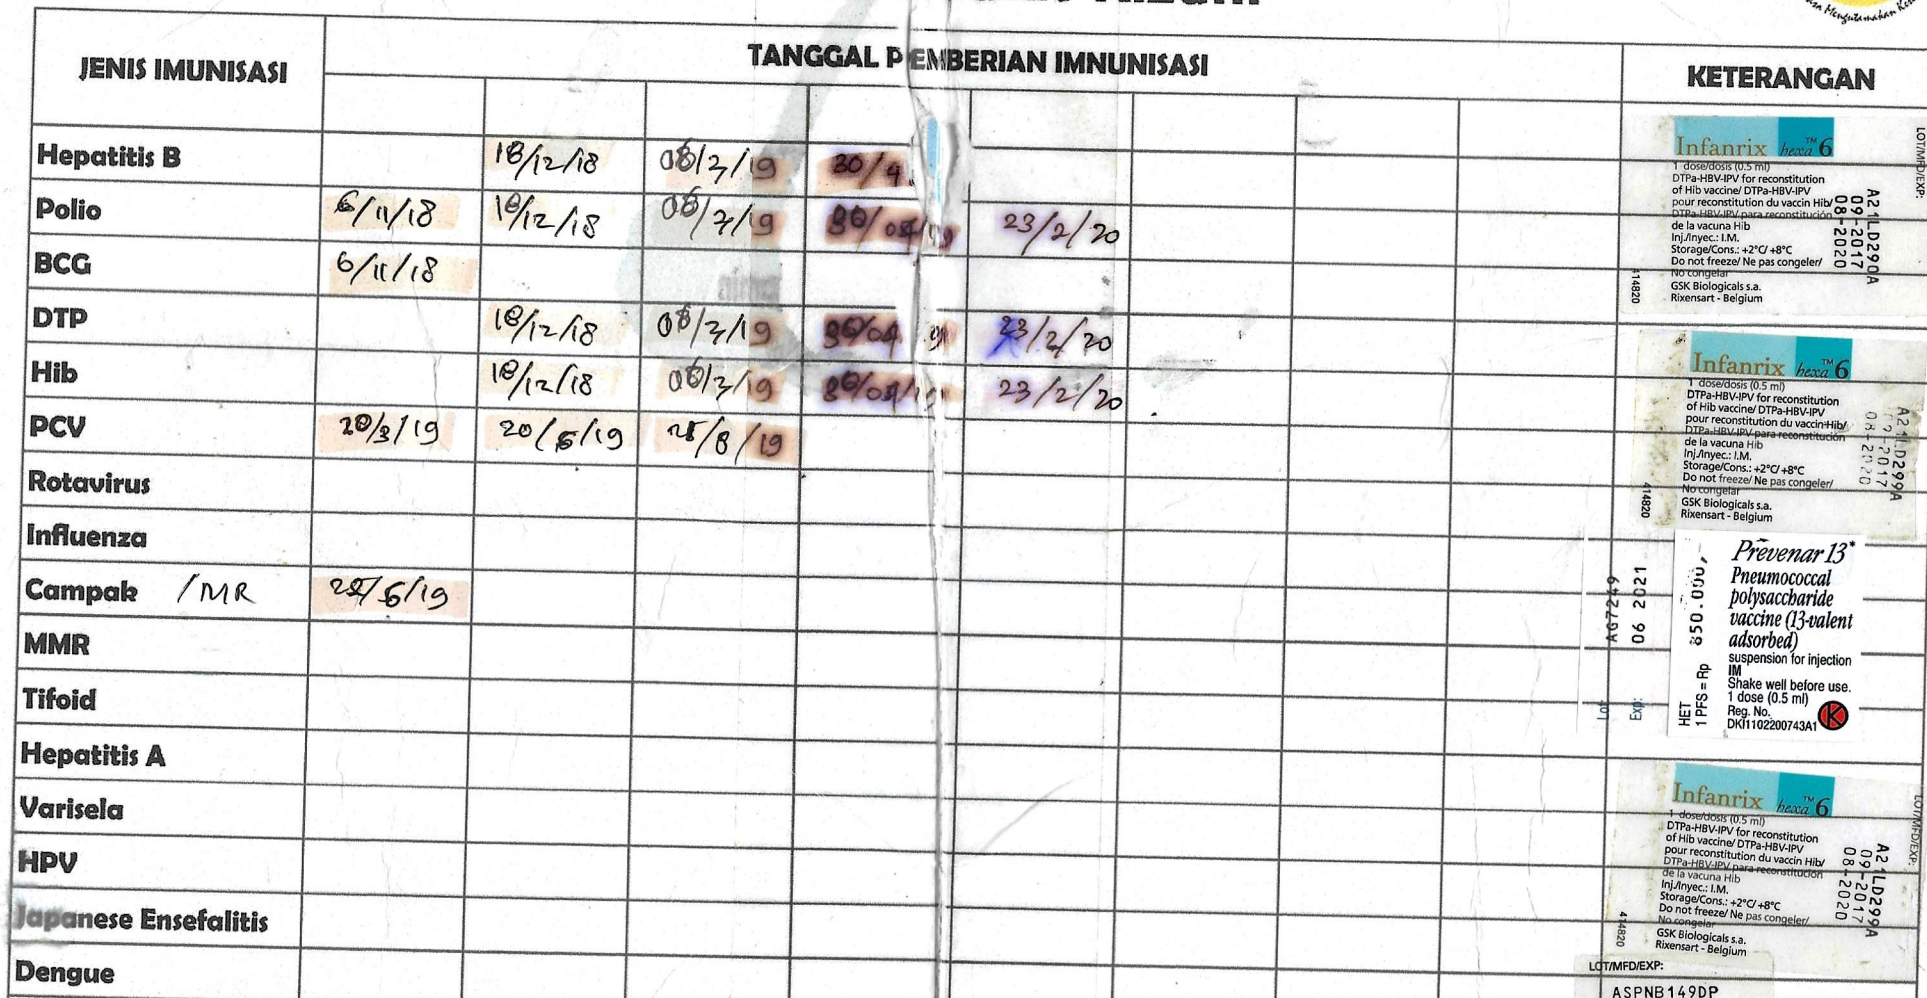 JENIS IMUNISASI
TANGGAL PEMBERIAN IMNUNISASI
KETERANGAN
Hepatitis B 18/12/18 08/2/19 30/4
Polio 6/11/18 18/12/18 08/2/19 30/04/19 23/2/20
BCG 6/11/18
DTP 18/12/18 08/2/19 30/04 19 23/2/20
Hib 18/12/18 08/2/19 30/04/19 23/2/20
PCV 20/3/19 20/5/19 21/8/19
Rotavirus
Influenza
Campak /MR /19
MMR
Tifoid
Hepatitis A
Varisela
HPV
Japanese Ensefalitis
Dengue
Infanrix hexa™ 6
1 dose/dosis (0.5 ml)
DTPa-HBV-IPV for reconstitution
of Hib vaccine/ DTPa-HBV-IPV
pour reconstitution du vaccin Hib/
DTPa-HBV-IPV para reconstitución
de la vacuna Hib
Inj./Inyec.: I.M.
Storage/Cons.: +2°C/ +8°C
Do not freeze/ Ne pas congeler/
No congelar
GSK Biologicals s.a.
Rixensart - Belgium
414820
LOT/MFD/EXP:
A21LD290A
09-2017
08-2020
Infanrix hexa™ 6
1 dose/dosis (0.5 ml)
DTPa-HBV-IPV for reconstitution
of Hib vaccine/ DTPa-HBV-IPV
pour reconstitution du vaccin Hib/
DTPa-HBV-IPV para reconstitución
de la vacuna Hib
Inj./Inyec.: I.M.
Storage/Cons.: +2°C/ +8°C
Do not freeze/ Ne pas congeler/
No congelar
GSK Biologicals s.a.
Rixensart - Belgium
414820
A21LD299A
09-2017
08-2020
Prevenar 13*
Pneumococcal
polysaccharide
vaccine (13-valent
adsorbed)
suspension for injection
IM
Shake well before use.
1 dose (0.5 ml)
Reg. No.
DKI1102200743A1
K
HET
1 PFS = Rp 850.000,
Lot
Exp: 06 2021
Infanrix hexa™ 6
1 dose/dosis (0.5 ml)
DTPa-HBV-IPV for reconstitution
of Hib vaccine/ DTPa-HBV-IPV
pour reconstitution du vaccin Hib/
DTPa-HBV-IPV para reconstitución
de la vacuna Hib
Inj./Inyec.: I.M.
Storage/Cons.: +2°C/ +8°C
Do not freeze/ Ne pas congeler/
No congelar
GSK Biologicals s.a.
Rixensart - Belgium
414820
LOT/MFD/EXP:
A21LD299A
09-2017
08-2020
LOT/MFD/EXP:
ASPNB149DP